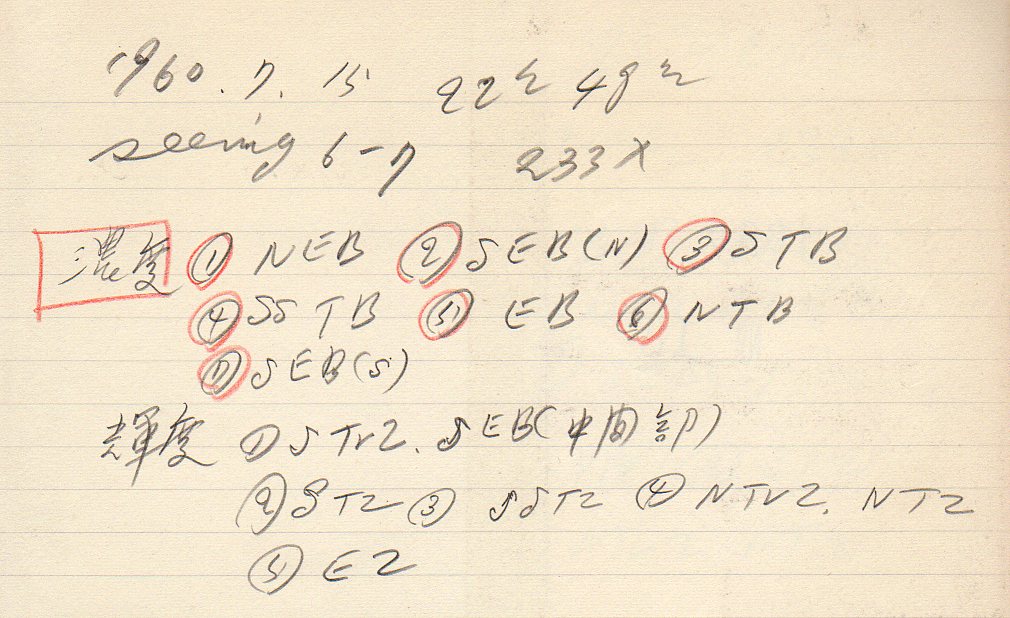 1960. 7. 15 22h 48m
seeing 6-7 233X
濃度 ① NEB ② SEB(N) ③ STB
④ SSTB ⑤ EB ⑥ NTB
⑦ SEB(S)
輝度 ① STrZ. SEB(中間部)
② STZ ③ SSTZ ④ NTrZ. NTZ
⑤ EZ